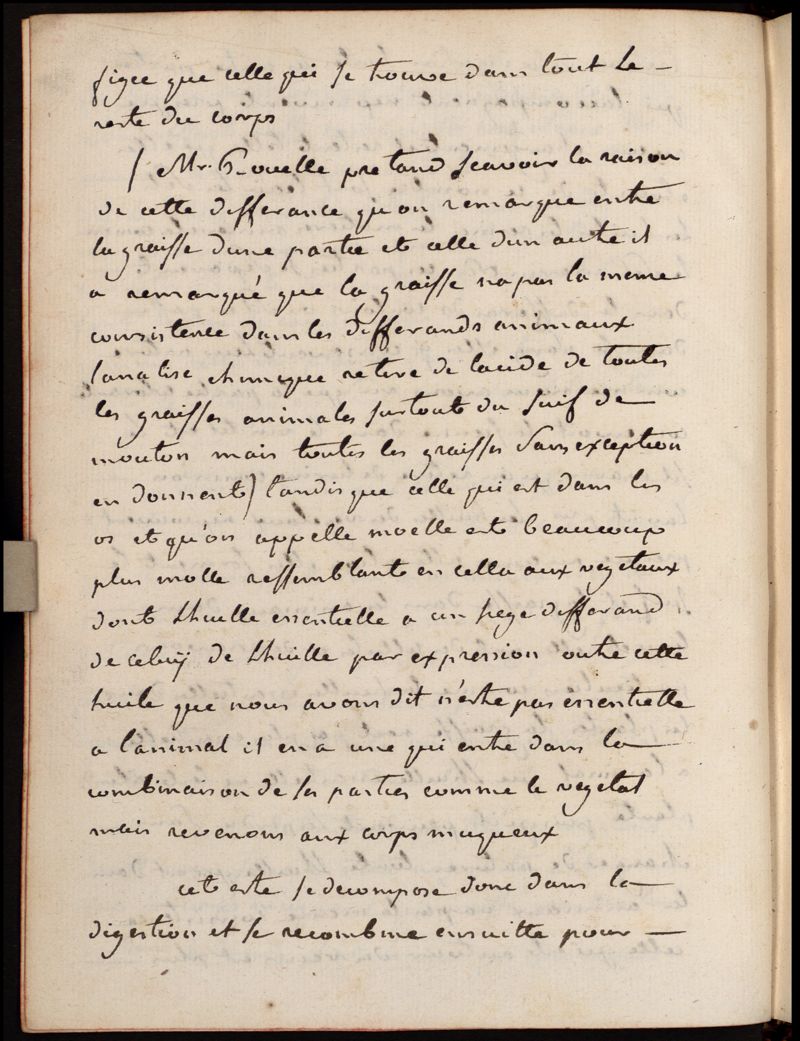 figee que celle qui se trouve dans tout le —
reste du corps
( Mr. Rouelle pretend scavoir la raison
de cette differance qu'on remarque entre
la graisse dune partie et celle dun autre il
a remarqué que la graisse na pas la meme
consistence dans les differands animaux
lanalise chimique retire de lacide de toutes
les graisses animales surtout du suif de —
mouton mais toutes les graisses sans exception
en donnent) tandis que celle qui est dans les
os et qu'on appelle moelle est beaucoup
plus molle ressemblante en cella aux vegetaux
dont lhuille essentielle a un siege differand
de celuÿ de lhuille par expression outre cette
huile que nous avons dit n'estre pas essentielle
a l'animal il en a une qui entre dans la —
combinaison de ses parties comme le vegetal
mais revenons aux corps muqueux
cet estre se decompose donc dans la —
digestion et se recombine ensuitte pour —